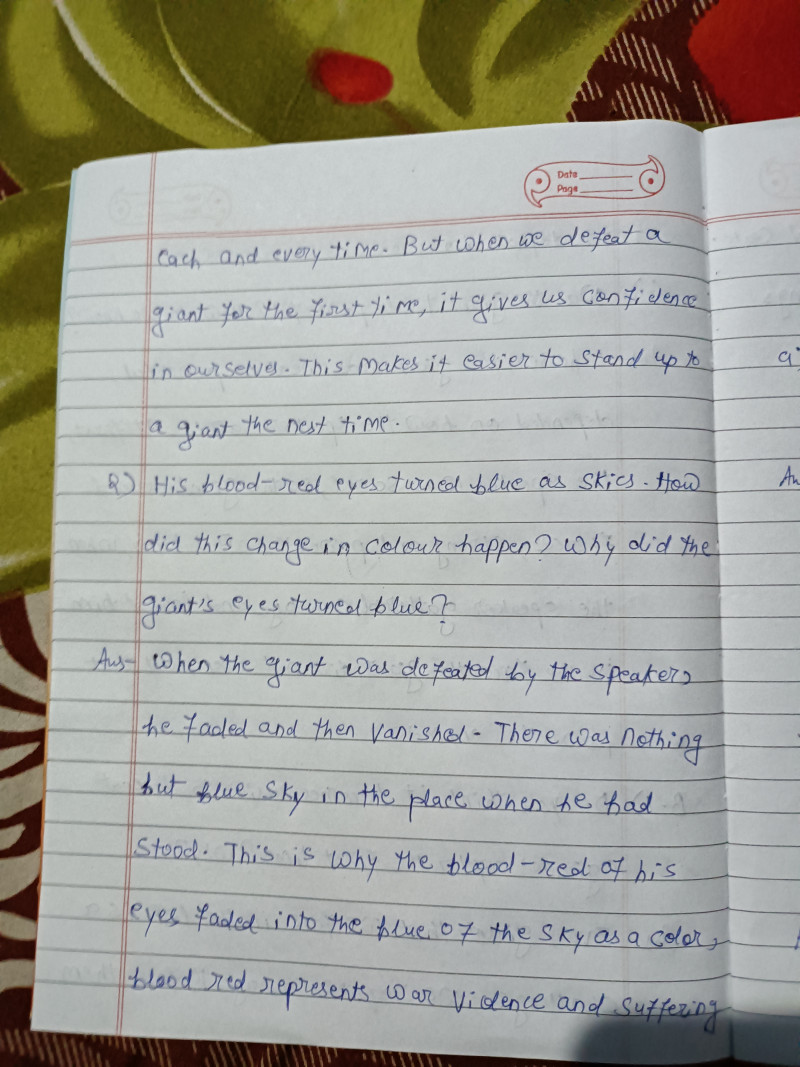 Date
Page
each and every time. But when we defeat a
giant for the first time, it gives us confidence
in ourselves. This makes it easier to stand up to
a giant the nest time.
Q) His blood-red eyes turned blue as skies. How
did this change in colour happen? Why did the
giant's eyes turned blue?
Ans- When the giant was defeated by the speaker,
he faded and then vanished- There was nothing
but blue sky in the place when he had
stood. This is why the blood-red of his
eyes faded into the blue of the sky as a color,
blood red represents war vidence and suffering
a
An